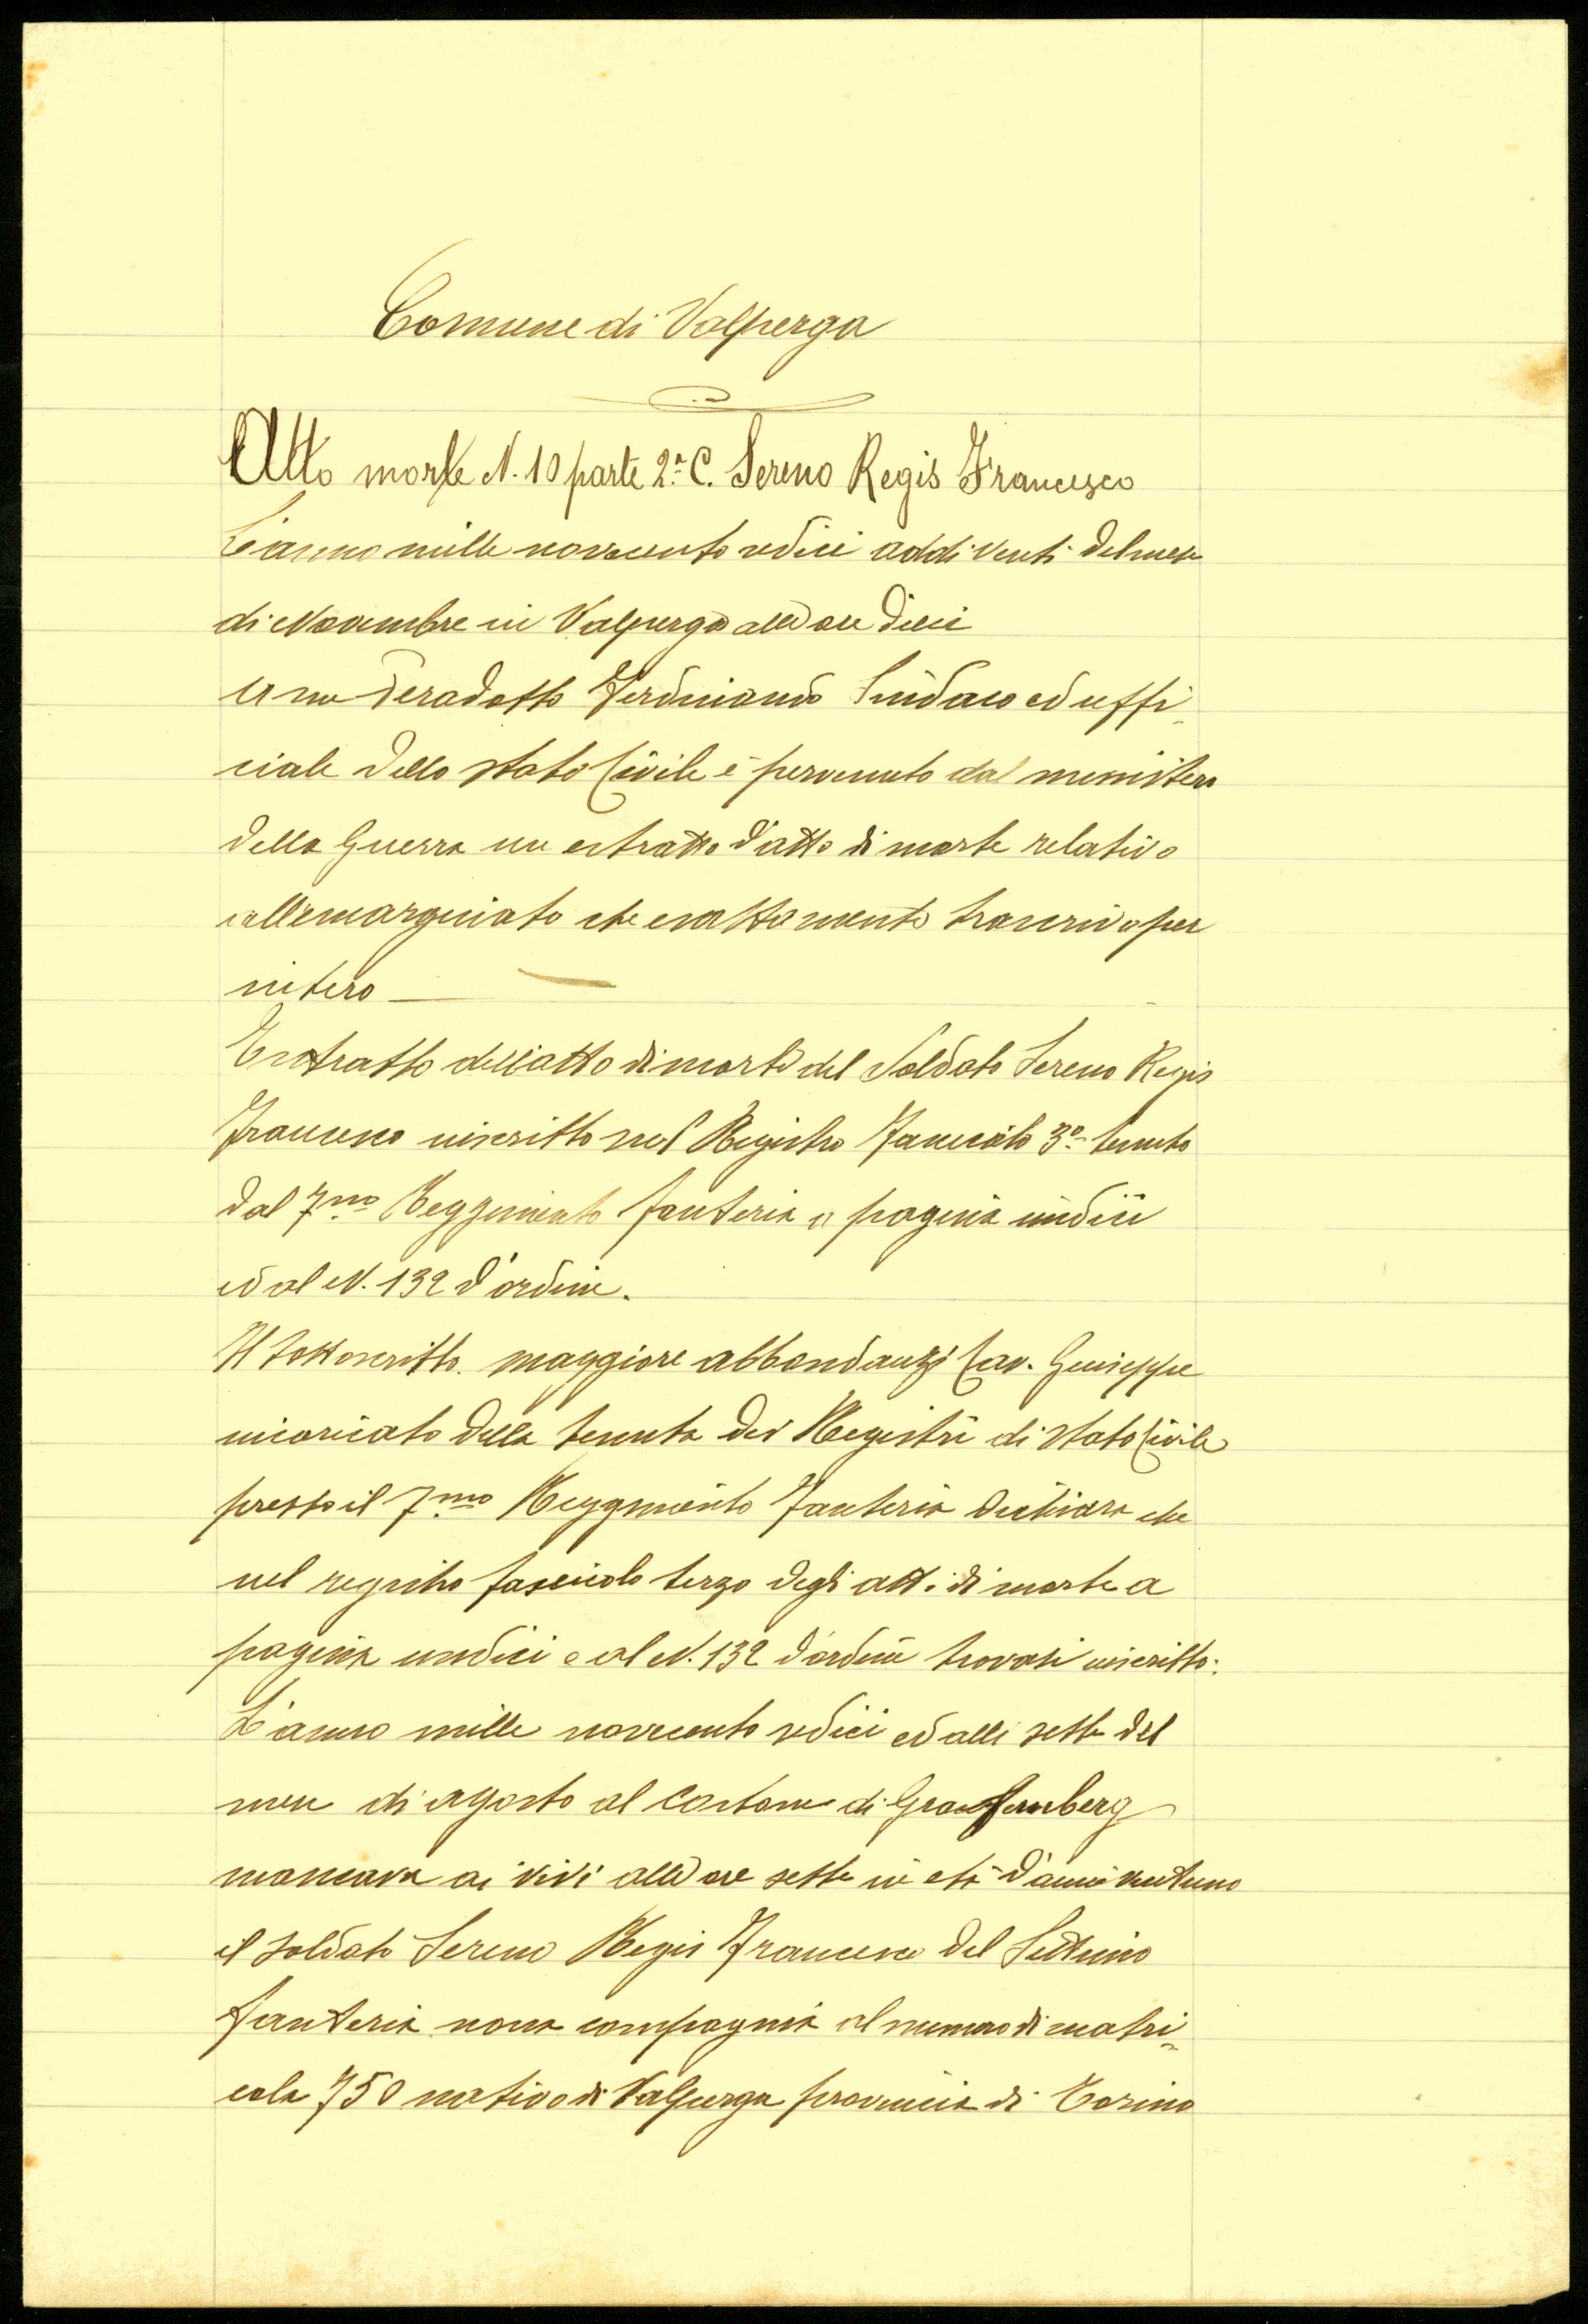 Comune di Valperga
Atto morte N. 10 parte 2.a C. Sereno Regis Francesco
L'anno mille novecento sedici addi venti del mese
di Novembre in Valperga alle ore dieci
a me Ferdinando Sindaco ed uffi-
ciale dello stato Civile è pervenuto dal ministero
della Guerra un estratto d'atto di morte relativo
all'emarginato che esattamente trascrivo per
intero —
Estratto dell'atto di morte del Soldato Sereno Regis
Francesco inscritto nel Registro Fascicolo 3o tenuto
dal 7mo Reggimento fanteria a pagina undici
ed al N. 132 d'ordine.
Il sottoscritto maggiore abbondanzi Cav. Giuseppe
incaricato della tenuta dei Registri di stato Civile
presso il 7mo Reggimento Fanteria dichiara che
nel registro fascicolo terzo degli atti di morte a
pagina undici e al N. 132 d'ordine trovasi inscritto:
L'anno mille novecento sedici ed alli sette del
mese di agosto al Costone di Grafenberg
mancava ai vivi alle ore sette in età d'anni ventuno
il soldato Sereno Regis Francesco del Settimo
fanteria nona compagnia al numero di matri-
cola 750 nativo di Valperga provincia di Torino